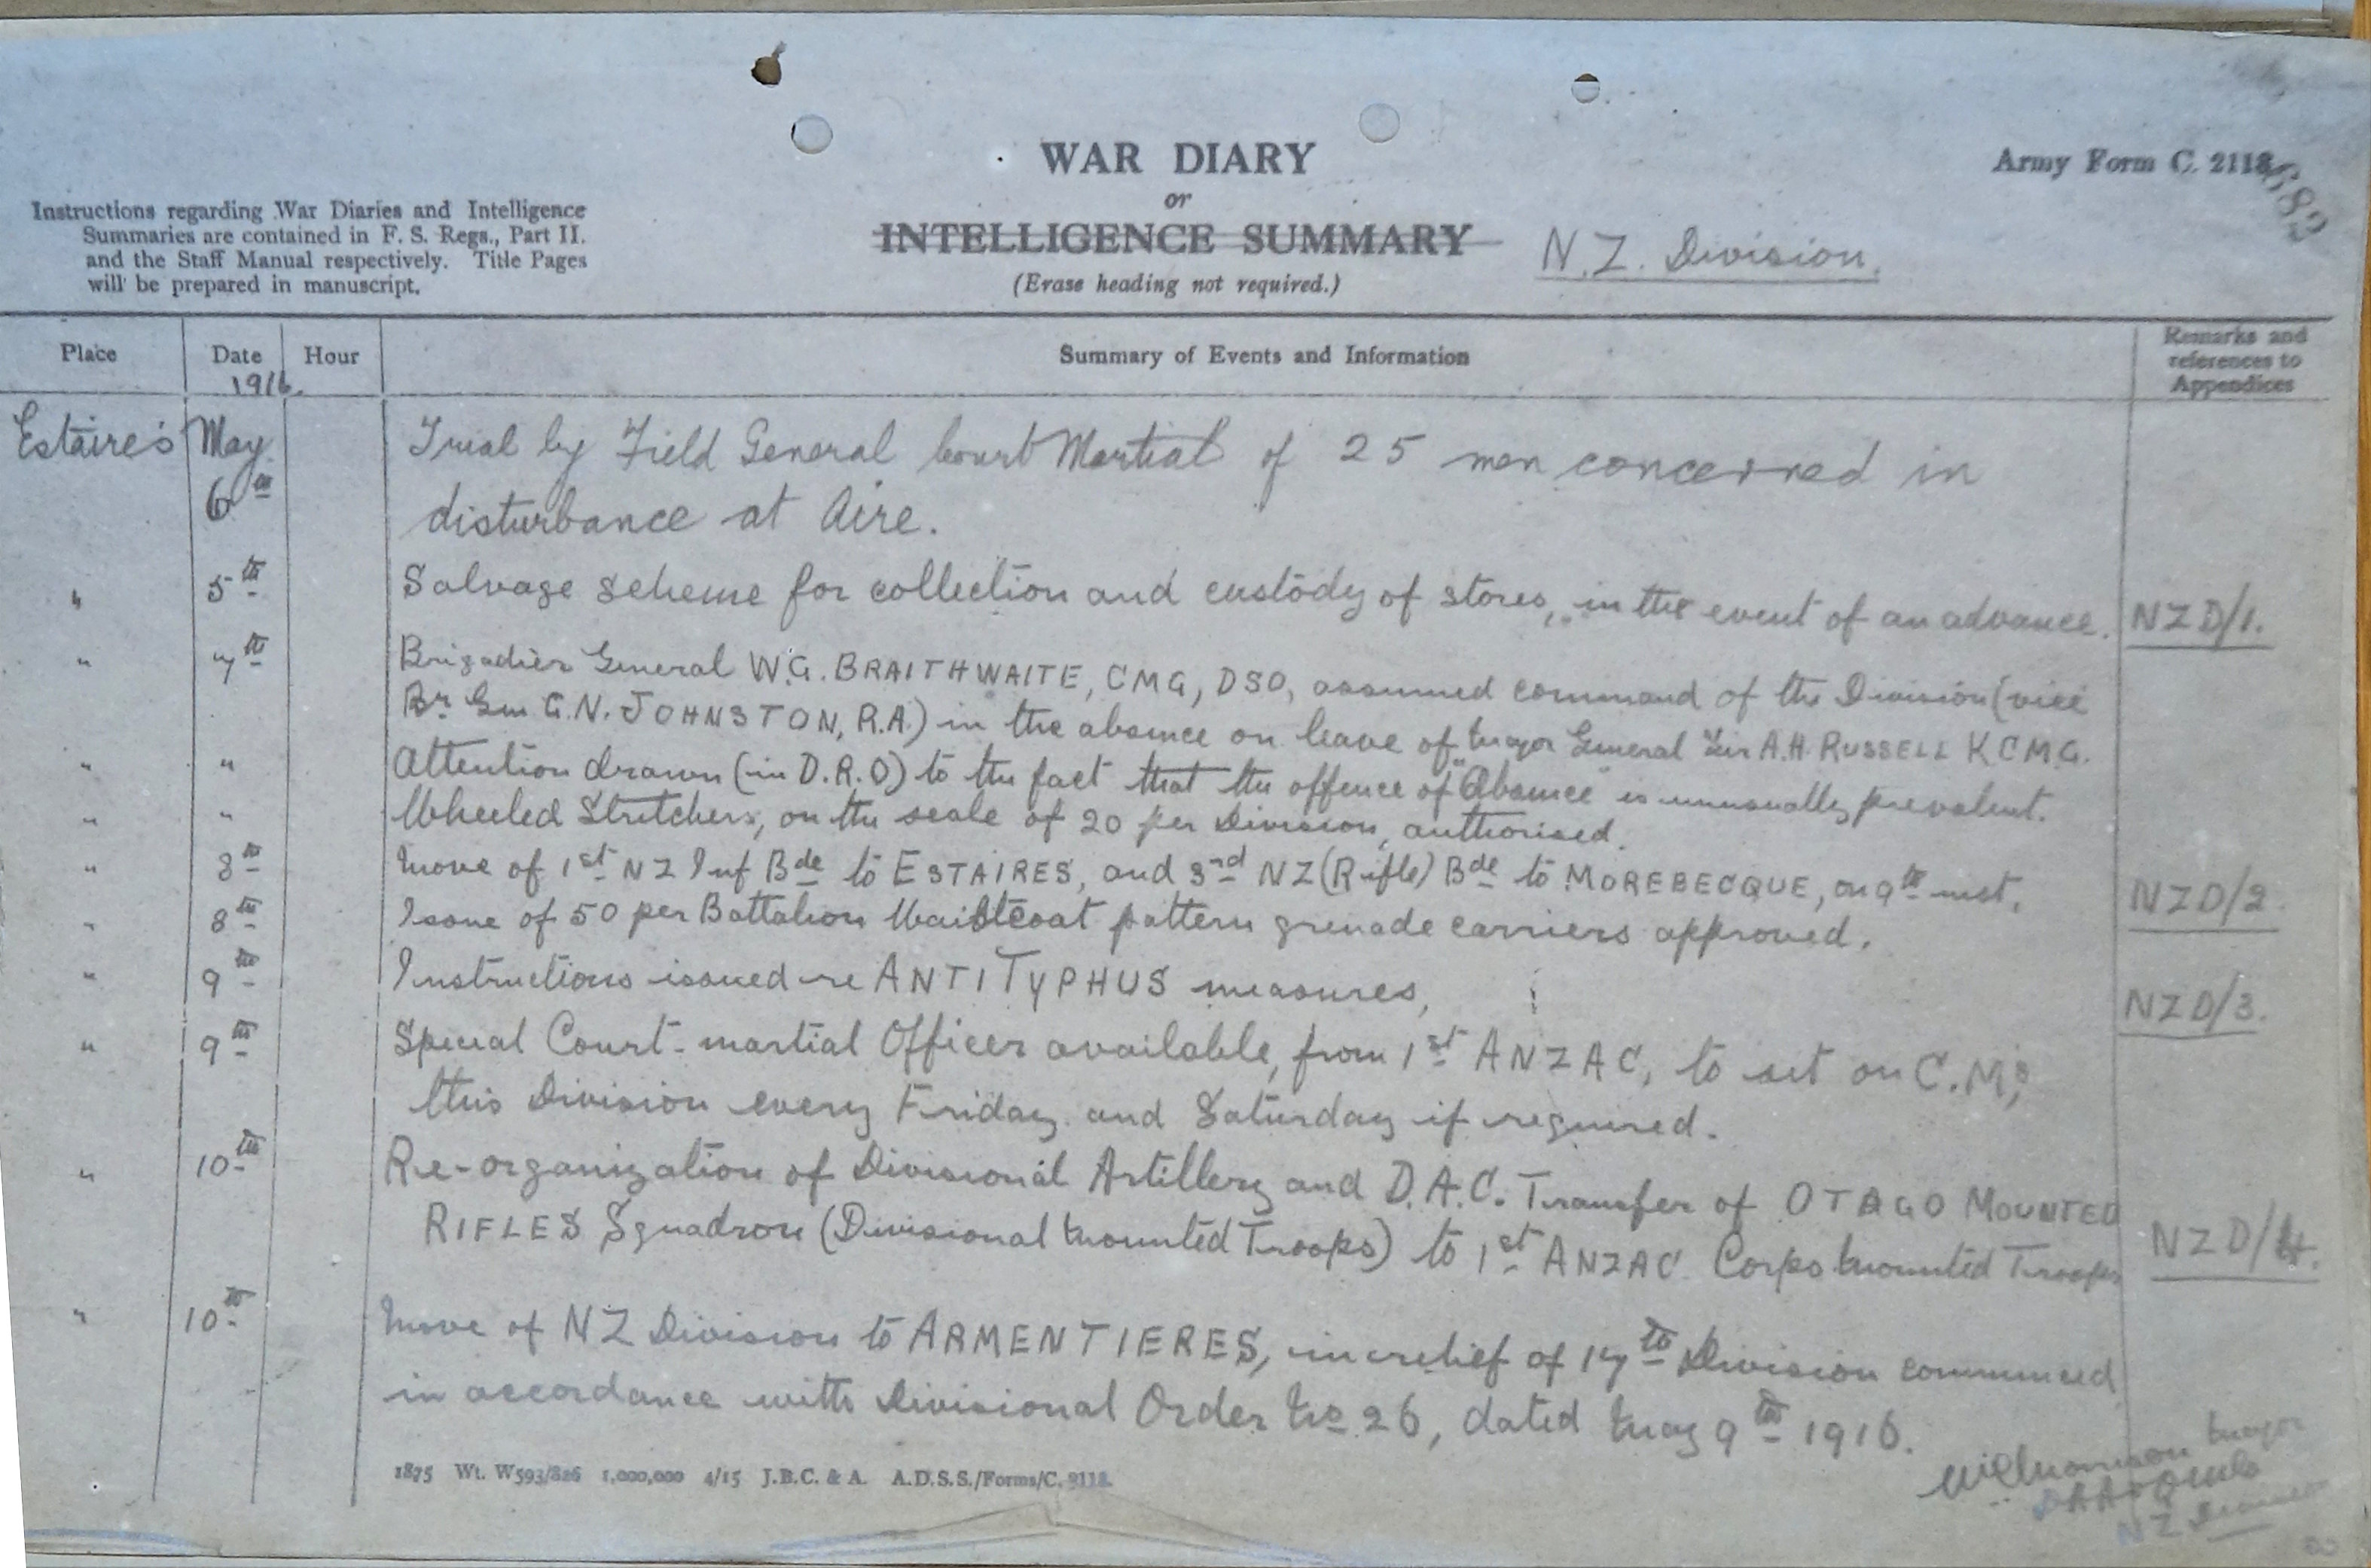 WAR DIARY
or
INTELLIGENCE SUMMARY
(Erase heading not required.)
N.Z. Division.
Army Form C. 2118
Instructions regarding War Diaries and Intelligence
Summaries are contained in F. S. Regs., Part II.
and the Staff Manual respectively. Title Pages
will be prepared in manuscript.
Place Date Hour Summary of Events and Information Remarks and references to Appendices
1916.
Estaires May 6th Trial by Field General Court Martial of 25 men concerned in
disturbance at Aire.
" 5th Salvage scheme for collection and custody of stores, in the event of an advance. NZD/1.
" 7th Brigadier General W.G. BRAITHWAITE, CMG, DSO, assumed command of the Division (vice
Br Gen G.N. JOHNSTON, R.A.) in the absence on leave of Major General Sir A.H. RUSSELL K.C.M.G.
" " Attention drawn (in D.R.O) to the fact that the offence of "Absence" is unusually prevalent.
" " Wheeled Stretchers, on the scale of 20 per Division, authorised.
" 8th Move of 1st NZ Inf Bde to ESTAIRES, and 3rd NZ (Rifle) Bde to MOREBECQUE, on 9th inst. NZD/2.
" 8th Issue of 50 per Battalion Waistcoat pattern grenade carriers approved.
" 9th Instructions issued re ANTITYPHUS measures, NZD/3.
" 9th Special Court-martial Officer available, from 1st ANZAC, to sit on C.Ms,
this Division every Friday and Saturday if required.
" 10th Re-organization of Divisional Artillery and D.A.C. Transfer of OTAGO MOUNTED
RIFLES Squadron (Divisional Mounted Troops) to 1st ANZAC Corps Mounted Troops NZD/4.
" 10th Move of NZ Division to ARMENTIERES, in relief of 17th Division commenced
in accordance with Divisional Order No 26, dated May 9th 1916.
Major
NZ Division
1875 Wt. W593/826 1,000,000 4/15 J.B.C. & A. A.D.S.S./Forms/C. 2118.